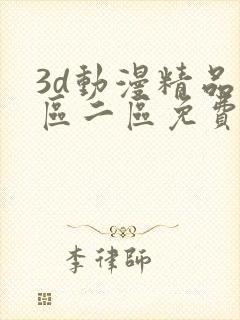 3d動漫精品
區二區免費
李律師